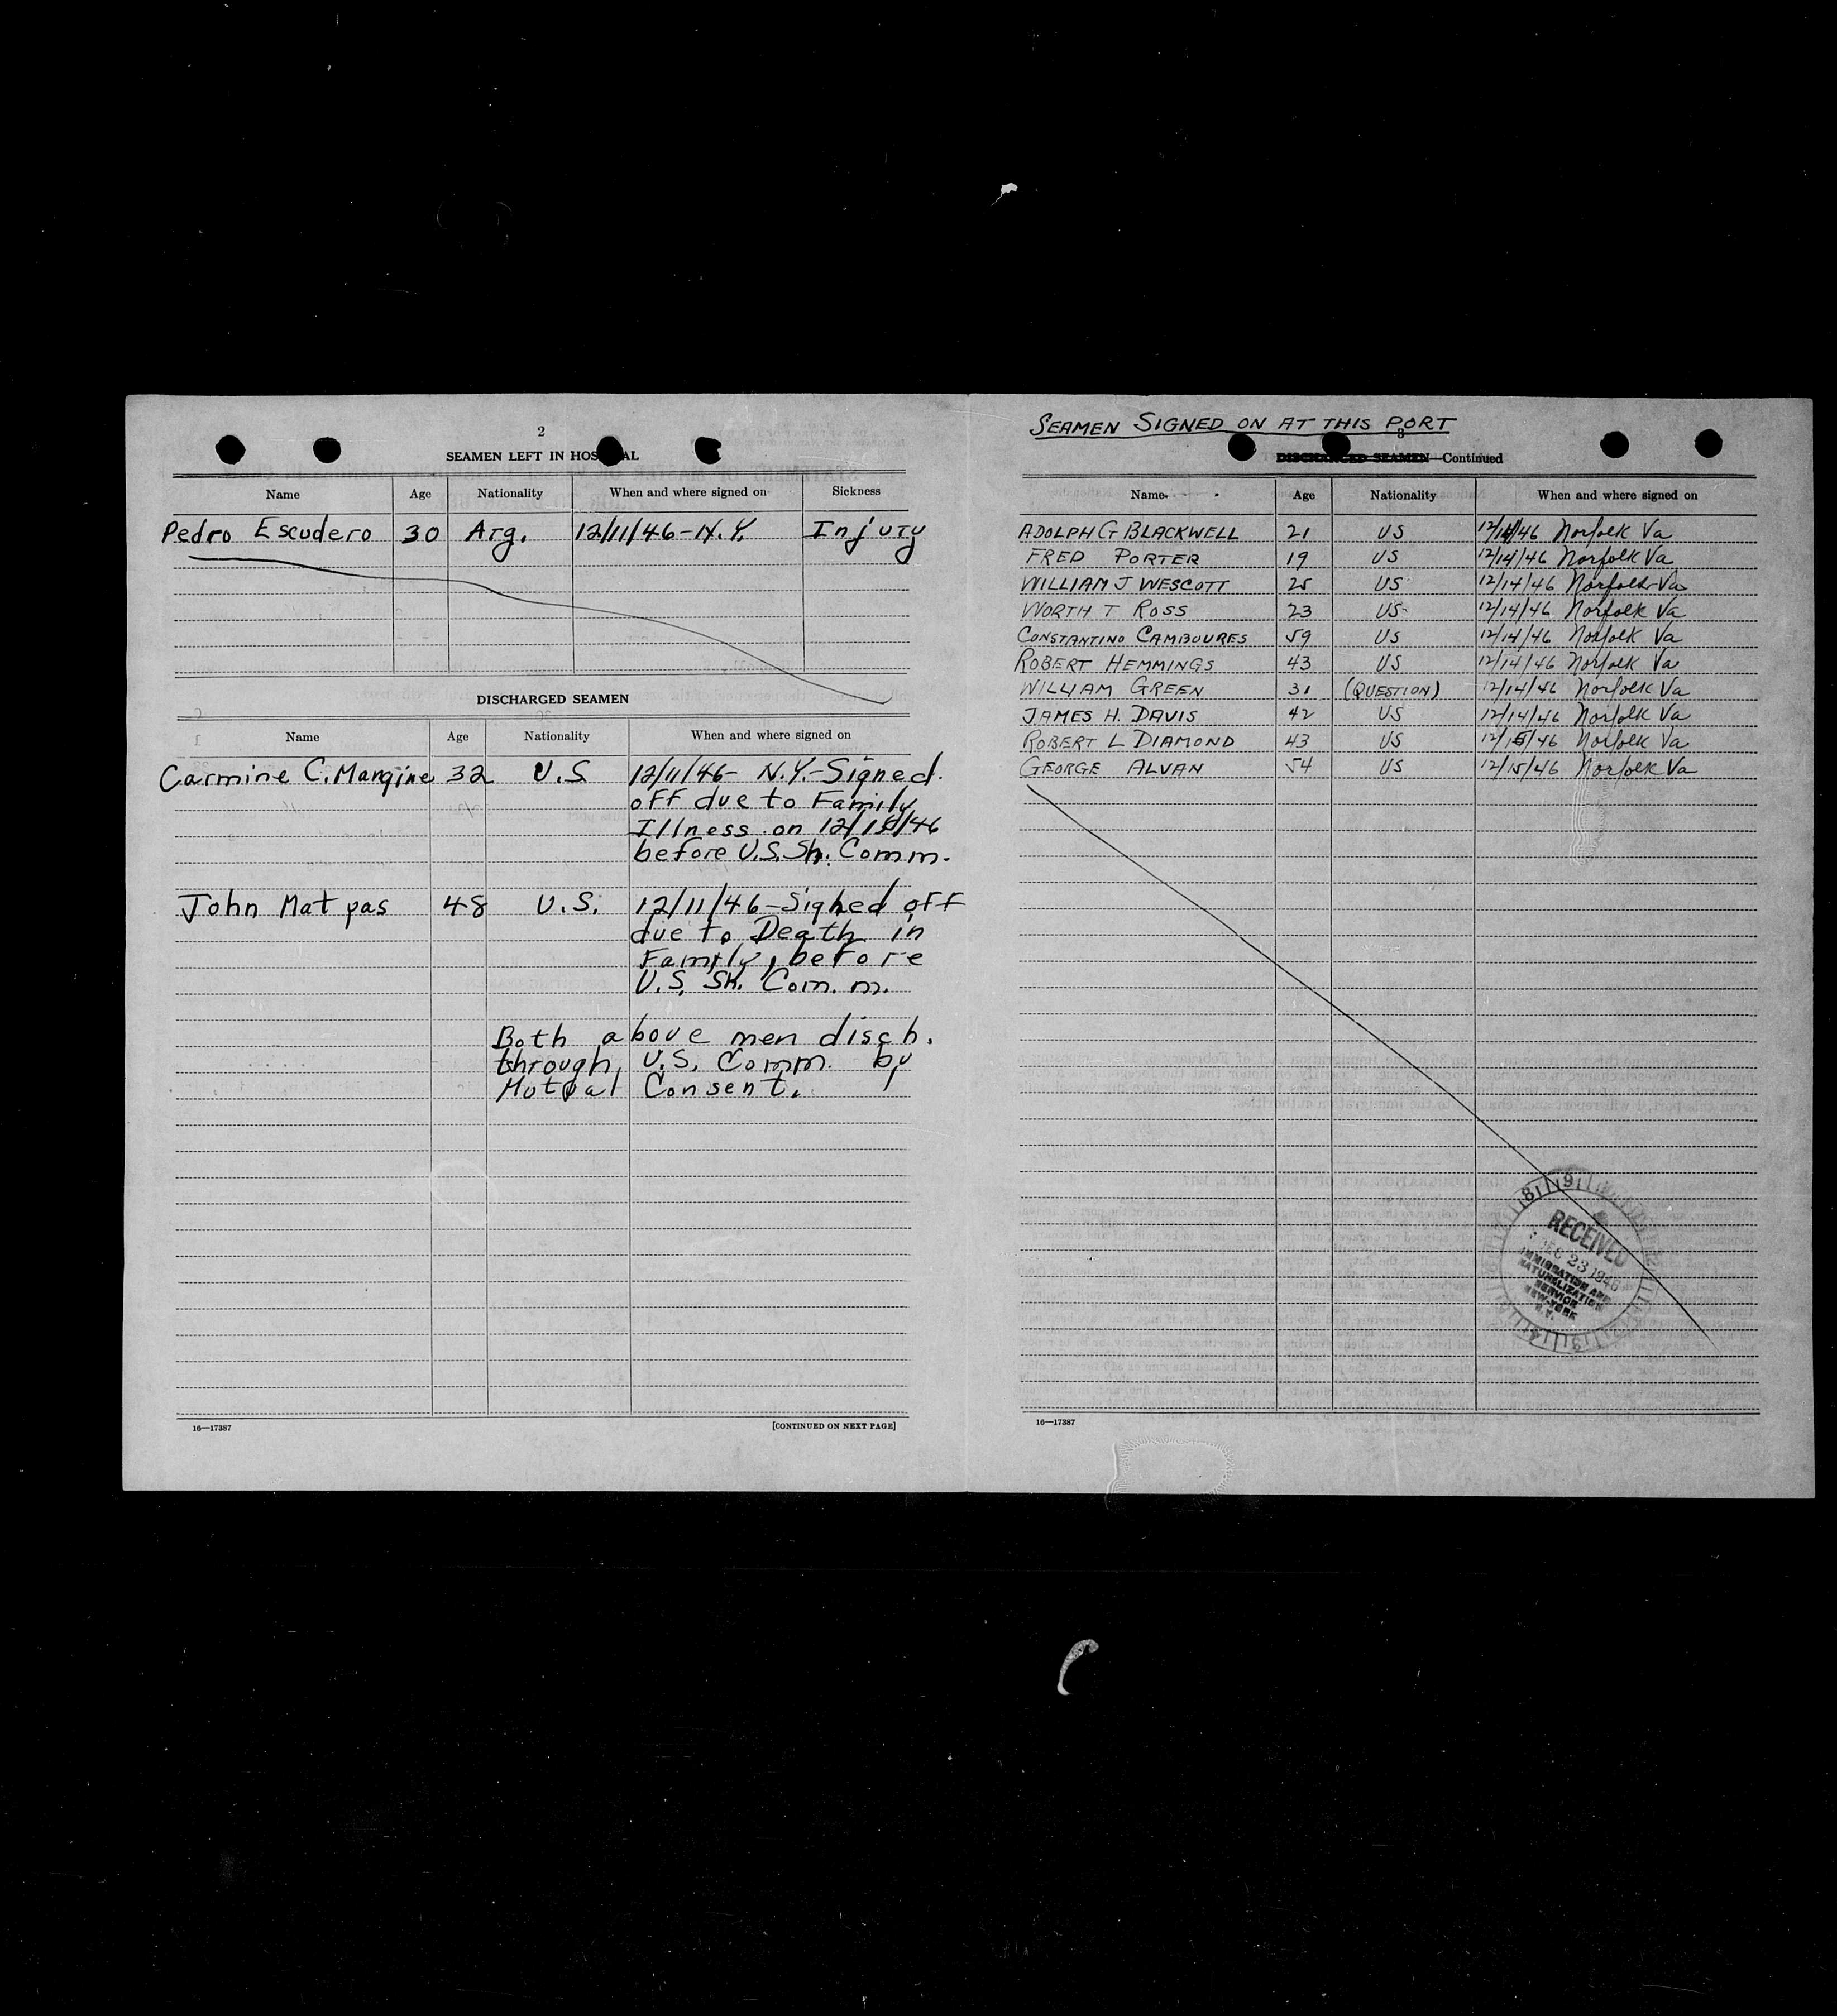 2
SEAMEN LEFT IN HOS AL
Name Age Nationality When and where signed on Sickness
Pedro Escudero 30 Arg. 12/11/46-N.Y. Injury
DISCHARGED SEAMEN
Name Age Nationality When and where signed on
Carmine C. Mangine 32 U.S 12/11/46- N.Y.-Signed.
off due to Family
Illness on 12/15/46
before U.S. Sh. Comm.
John Matpas 48 U.S. 12/11/46-Signed off
due to Death in
Family, before
U.S. Sh. Com.m.
Both above men disch.
through U.S. Comm. by
Mutual Consent.
16—17387 [CONTINUED ON NEXT PAGE]
SEAMEN SIGNED ON AT THIS PORT
3
DISCHARGED SEAMEN—Continued
Name Age Nationality When and where signed on
ADOLPH G BLACKWELL 21 US 12/14/46 Norfolk Va
FRED PORTER 19 US 12/14/46 Norfolk Va
WILLIAM J WESCOTT 25 US 12/14/46 Norfolk Va
WORTH T ROSS 23 US 12/14/46 Norfolk Va
CONSTANTINO CAMBOURES 59 US 12/14/46 Norfolk Va
ROBERT HEMMINGS 43 US 12/14/46 Norfolk Va
WILLIAM GREEN 31 (QUESTION) 12/14/46 Norfolk Va
JAMES H. DAVIS 42 US 12/14/46 Norfolk Va
ROBERT L DIAMOND 43 US 12/15/46 Norfolk Va
GEORGE ALVAN 54 US 12/15/46 Norfolk Va
RECEIVED
DEC 23 1946
IMMIGRATION AND
NATURALIZATION
SERVICE
NEW YORK
N.Y.
16—17387